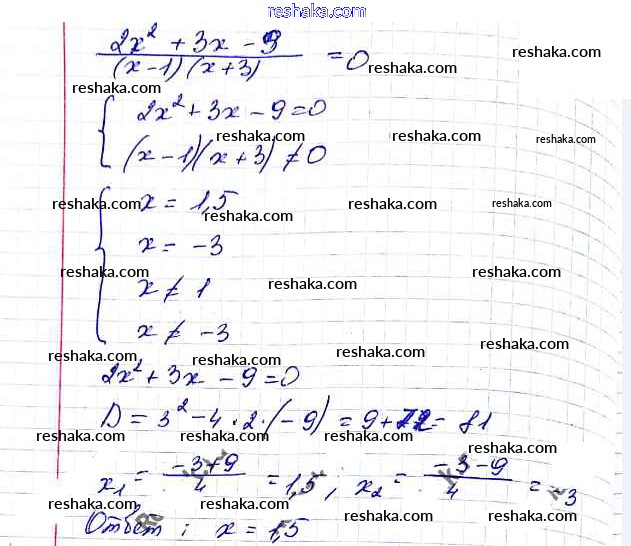 reshaka.com
2x² + 3x - 9
(x-1)(x+3) = 0
reshaka.com
reshaka.com reshaka.com
2x² + 3x - 9 = 0
reshaka.com reshaka.com reshaka.com
(x-1)(x+3) ≠ 0
x = 1,5
reshaka.com reshaka.com reshaka.com reshaka.com
x = -3
reshaka.com reshaka.com reshaka.com
x ≠ 1
x ≠ -3
reshaka.com reshaka.com reshaka.com reshaka.com
2x² + 3x - 9 = 0
reshaka.com reshaka.com
D = 3² - 4 · 2 · (-9) = 9 + 72 = 81
reshaka.com reshaka.com reshaka.com
x₁ = -3+9 / 4 = 1,5, x₂ = -3-9 / 4 = -3
reshaka.com reshaka.com reshaka.com
Ответ: x = 1,5
reshaka.com reshaka.com reshaka.com